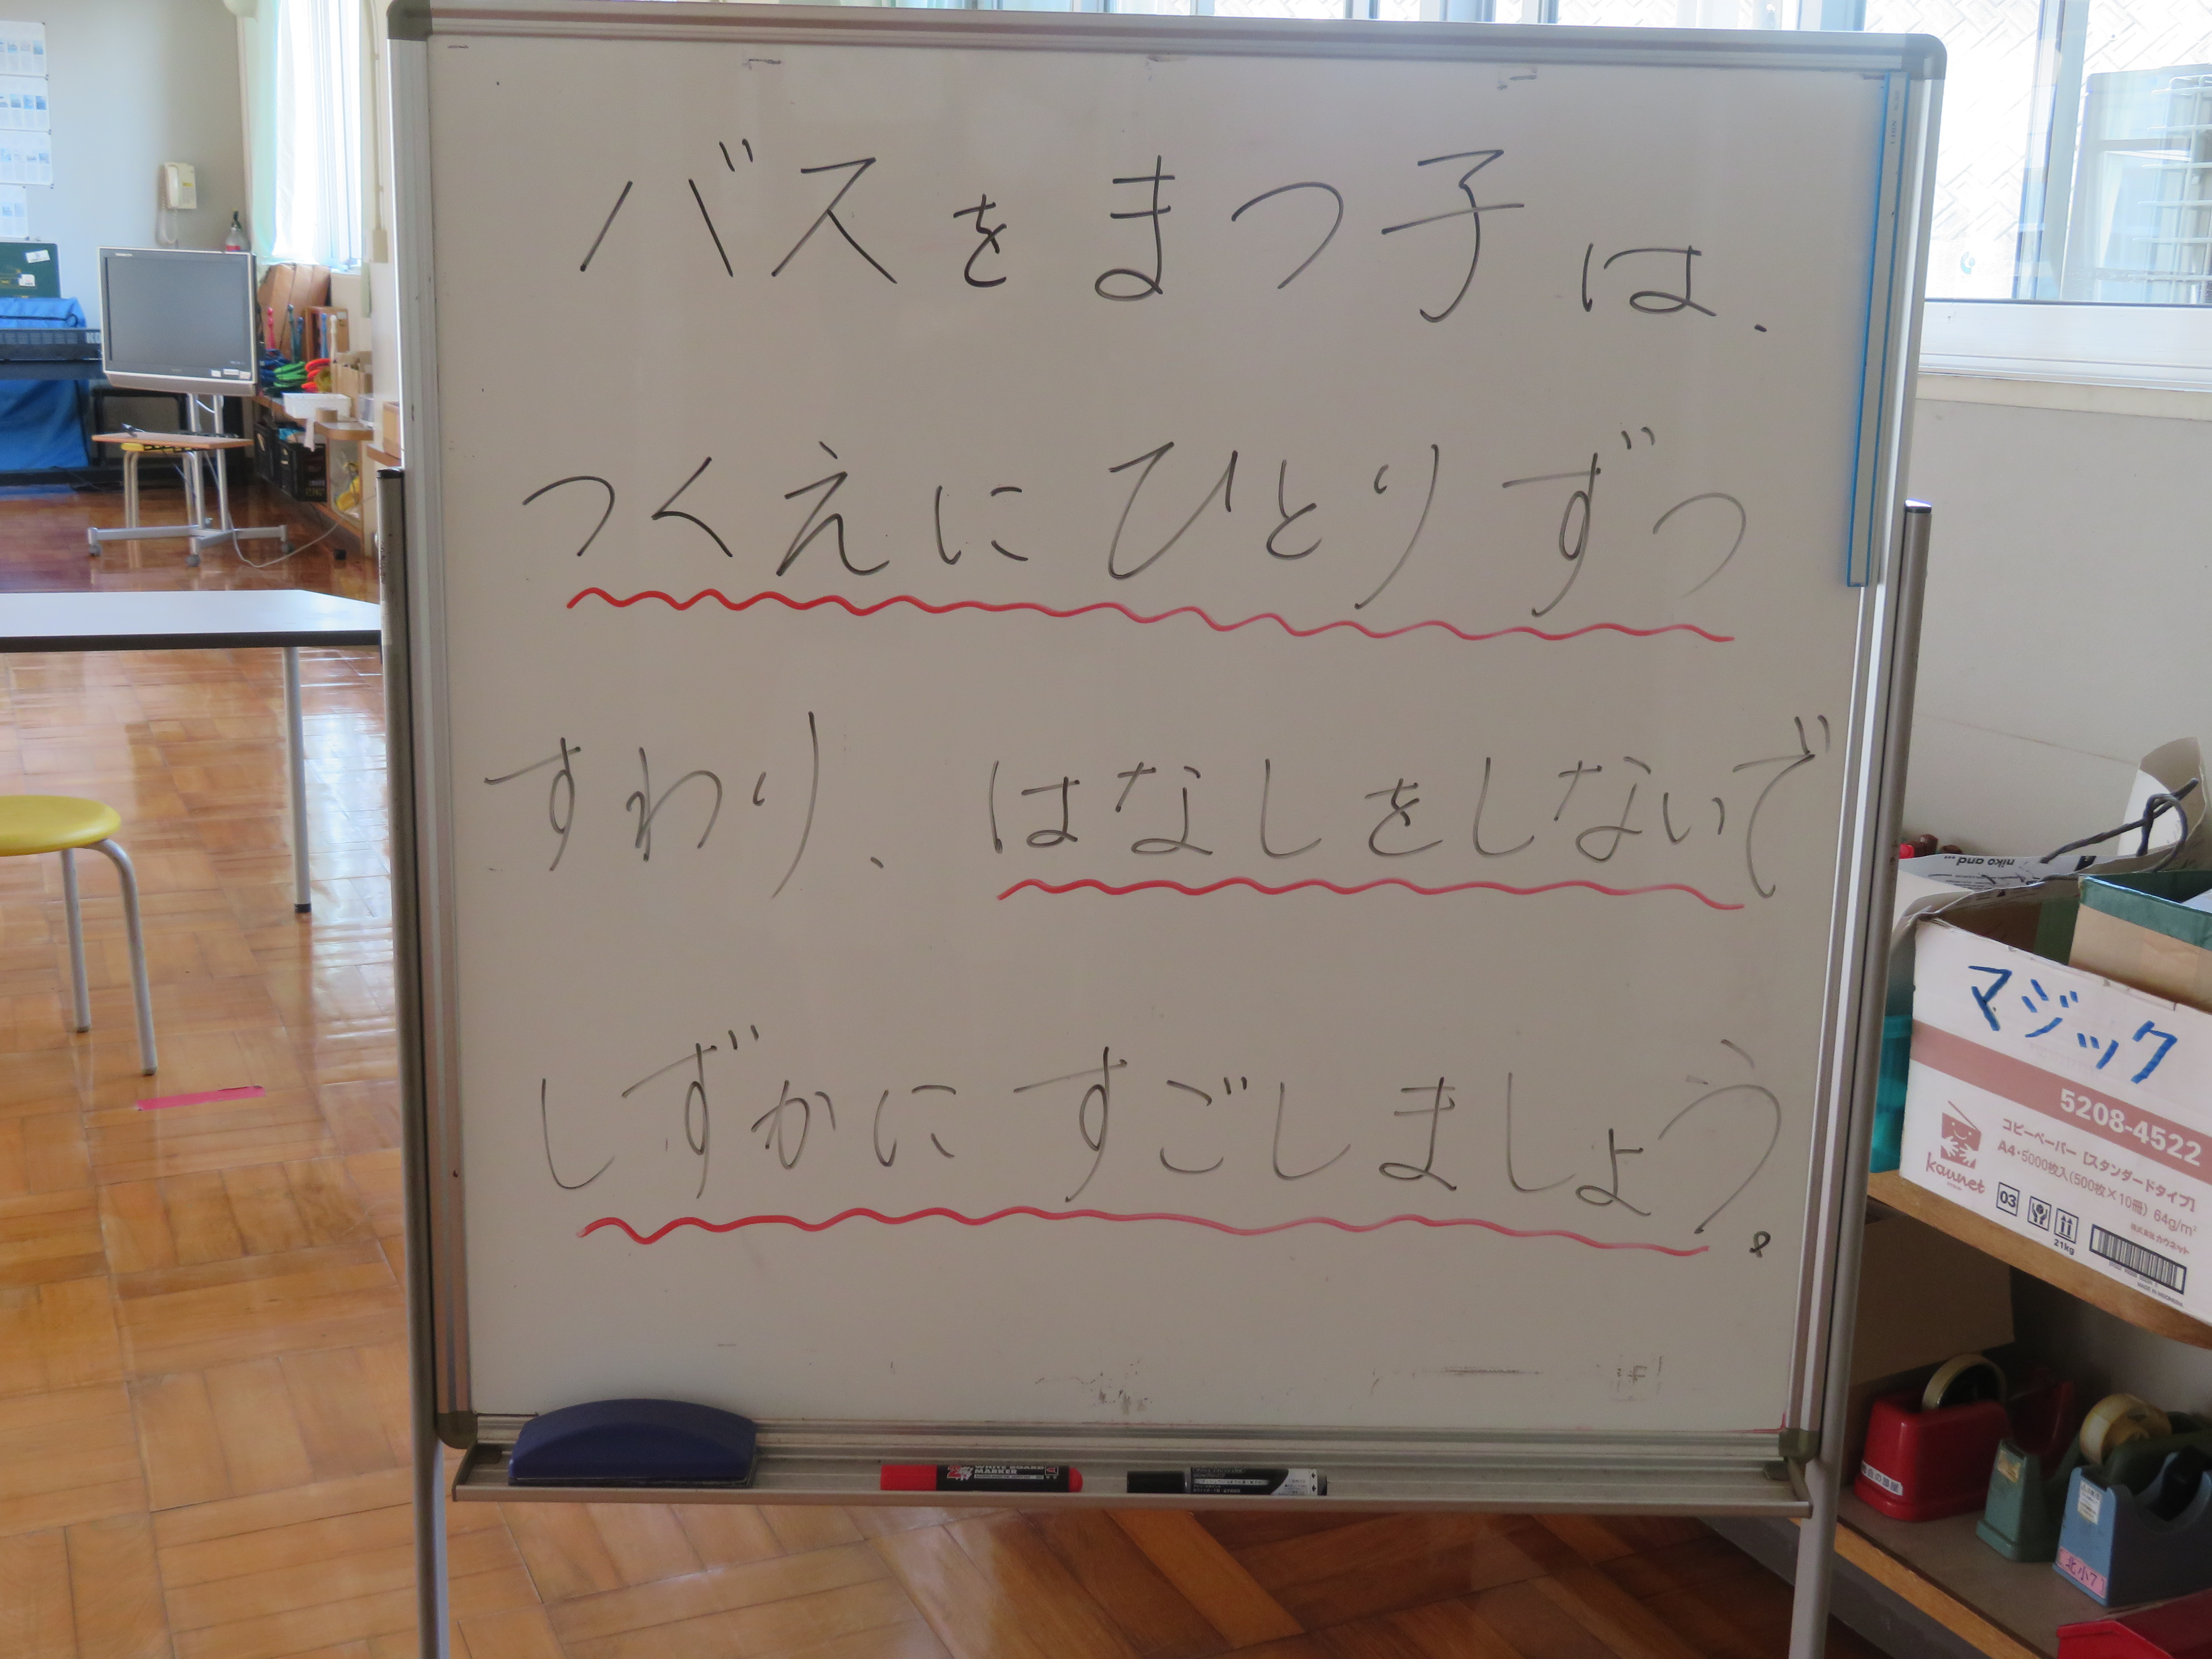 バスをまつ子は、
つくえにひとりずつ
すわり、はなしをしないで
しずかにすごしましょう。
niko and ...
マジック
5208-4522
コピーペーパー【スタンダードタイプ】
A4・5000枚入(500枚×10冊) 64g/m²
kaunet
03
21kg
株式会社カウネット
WHITE BOARD
MARKER
北小7